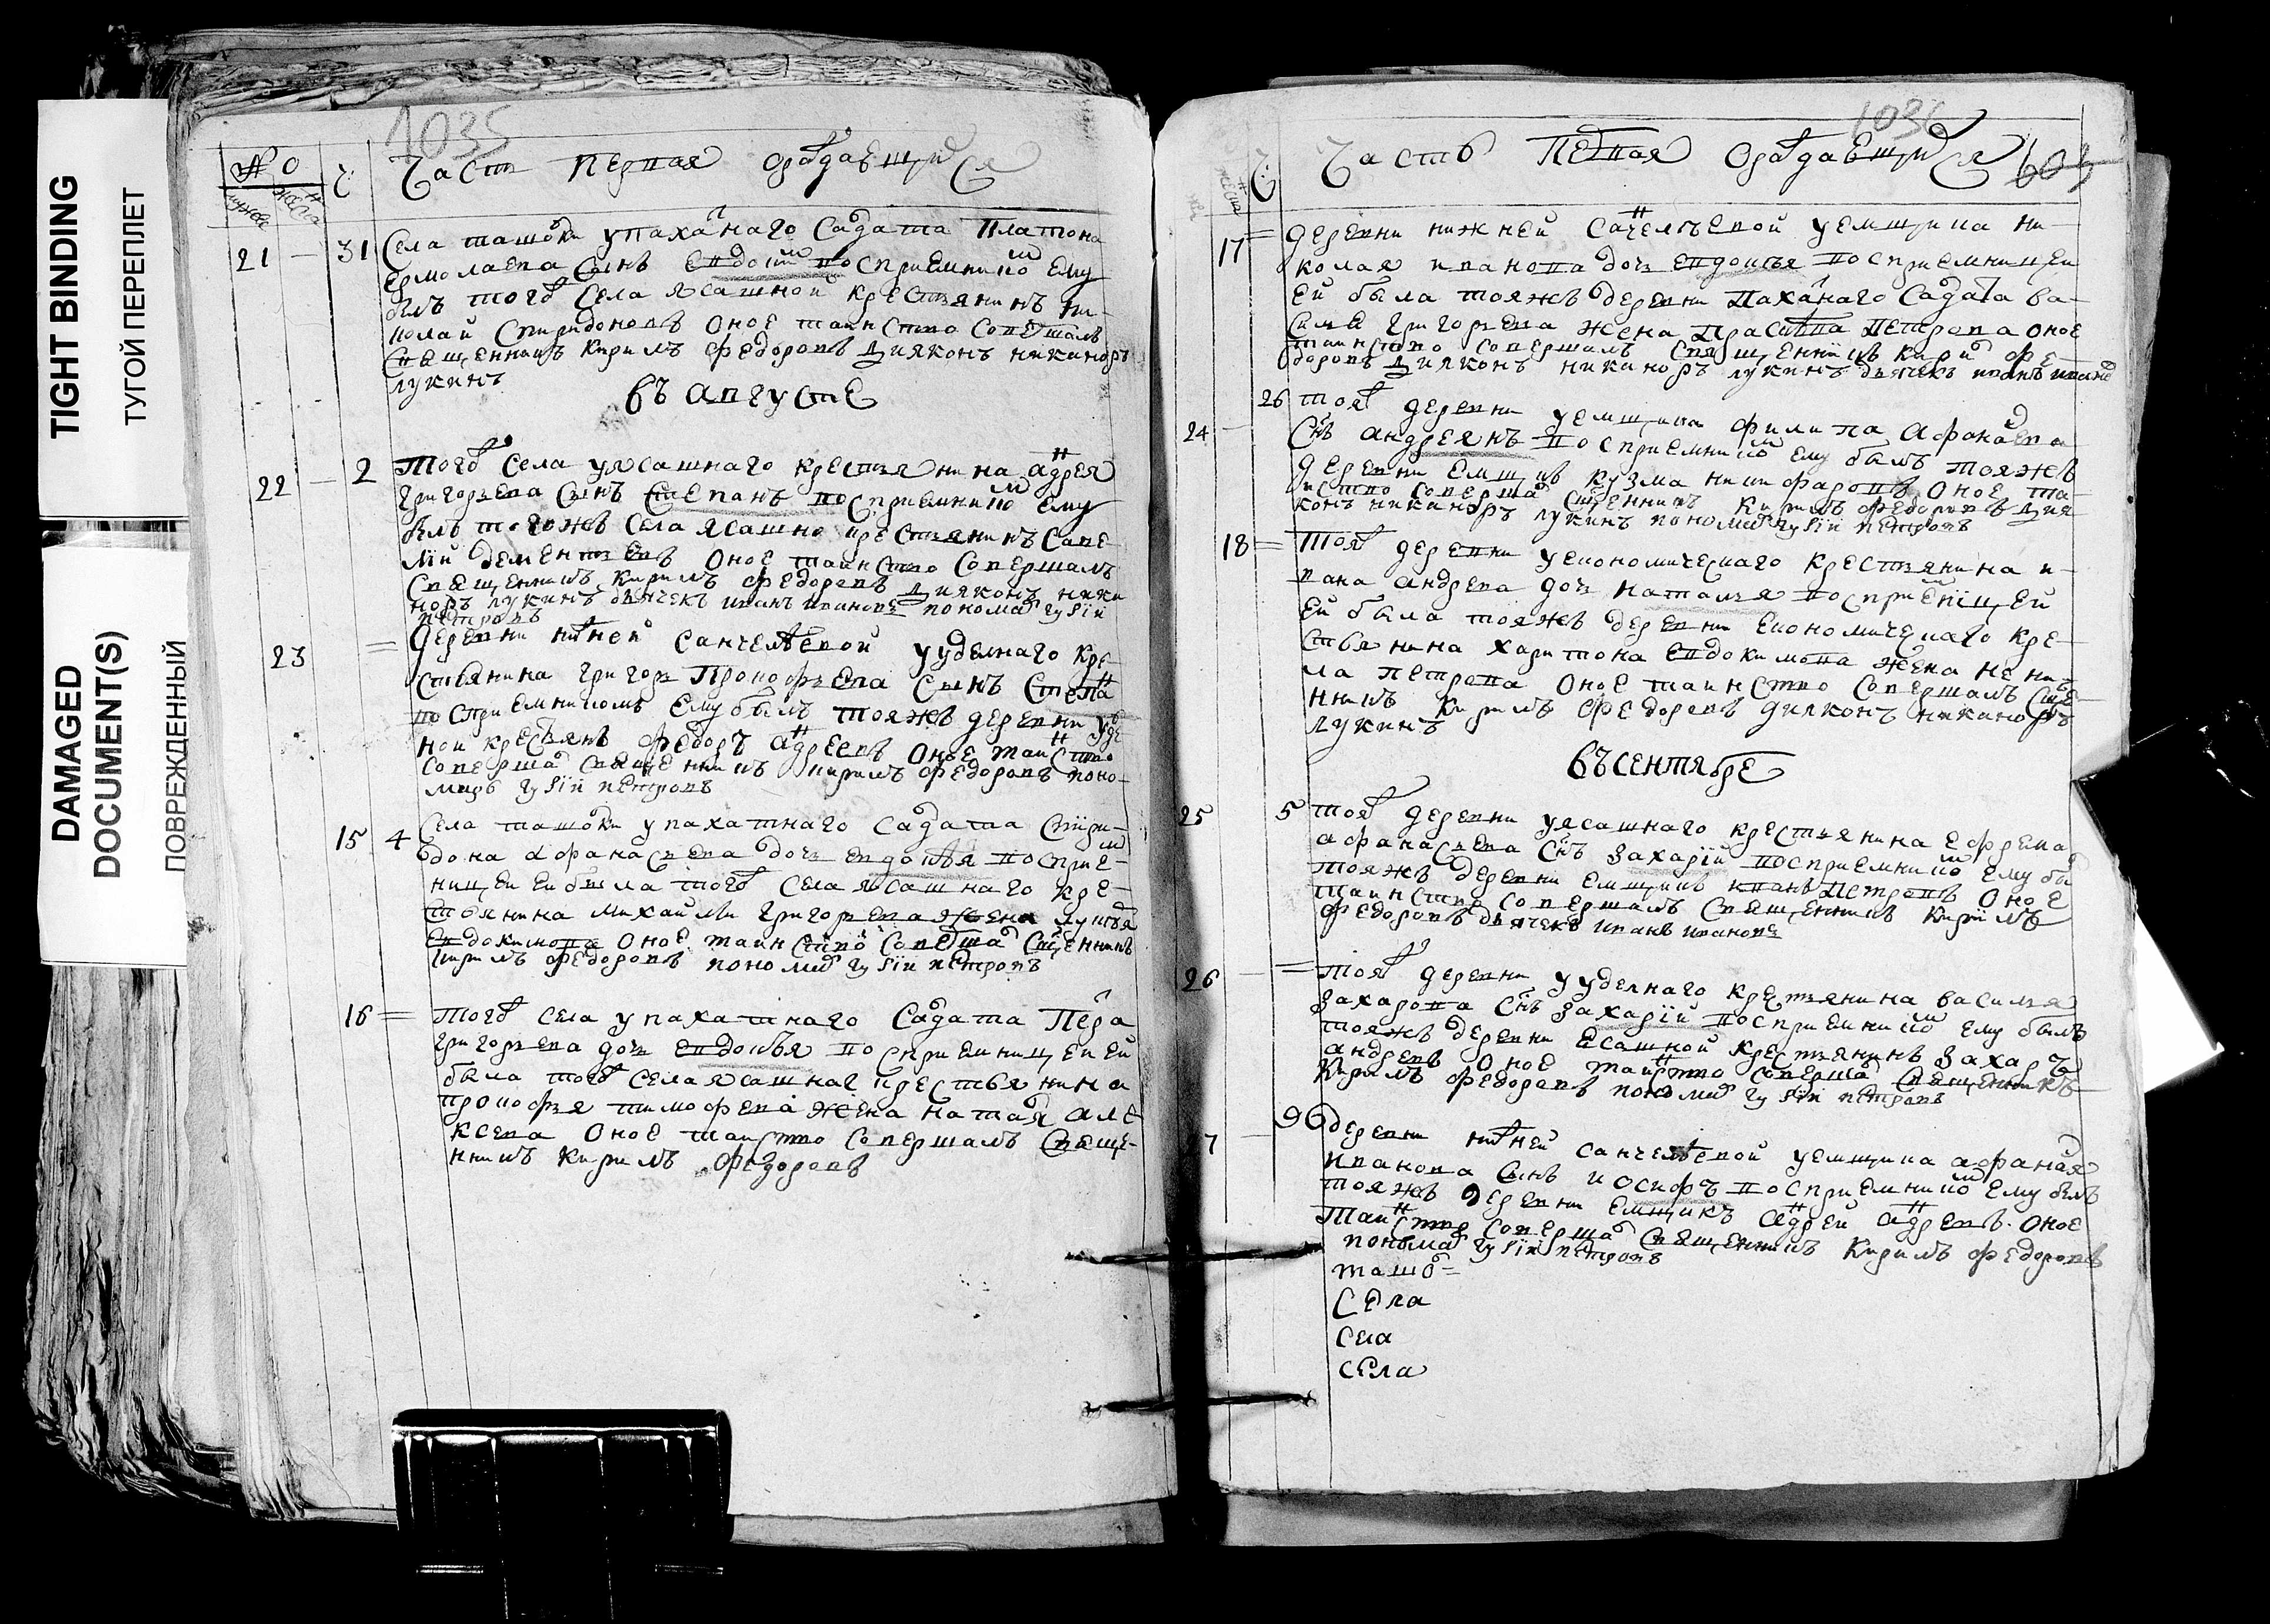 TIGHT BINDING
ТУГОЙ ПЕРЕПЛЕТ
DAMAGED
DOCUMENT(S)
ПОВРЕЖДЕННЫЙ
1035
№ 0
Часть первая о раждавшихся
21 — 31 Села ташолки у пахатнаго Салдата Платона
Ермолаева сынъ Евдокимъ восприемникомъ ему
былъ тогожъ Села ясашной крестьянинъ Ни-
колай Спиридоновъ оное таинство совершалъ
священникъ Кирилъ Федоровъ Диаконъ Никаноръ
Лукинъ
въ августе
22 — 2 тогожъ Села у ясашнаго крестьянина андрея
григорьева сынъ Степанъ восприемникомъ ему
былъ тогожъ Села ясашно крестьянинъ Саве-
лий дементьевъ оное таинство совершалъ
священникъ Кирилъ Федоровъ Диаконъ ника
норъ лукинъ дьячекъ иванъ ивановъ пономарь гурий
петровъ
23 = деревни нижней санчелѣевой у уделнаго кре-
стьянина григорья Прокофьева сынъ Степанъ
восприемникомъ ему былъ тояжъ деревни удел
ной крестьянъ федоръ андреевъ оное таинство
совершалъ священникъ кирилъ федоровъ поно-
марь гурий петровъ
15 4 Села ташолки у пахатнаго салдата Спири-
дона афанасьева дочь евдокия восприем-
ницей ей была тогожъ села ясашнаго кре-
стьянина михаилы григорьева жена лукерья
евдокимова оное таинство совершалъ священникъ
кирилъ федоровъ пономарь гурий петровъ
16 = тогожъ села у пахатнаго салдата Петра
григорьева дочь евдокия восприемницей ей
была тогожъ села ясашнаг крестьянина
прокофья тимофева жена наталя але
ксева оное таинство совершалъ священ-
никъ кирилъ федоровъ
1036
603
Часть Первая о раждавшихся
17 = деревни нижней сачелѣевой у емщика ни-
колая иванова дочь евдокия восприемницей
ей была тояжъ деревни пахатнаго салдата ва-
силя григорьева жена Прасковья Петрова оное
таинство совершалъ священникъ кирилъ фе-
доровъ диаконъ никаноръ лукинъ дьячекъ иванъ ивановъ
24 — 26 тояжъ деревни у емщика филипа афанасева
снъ андреянъ восприемникомъ ему былъ тояжъ
деревни емщикъ кузма никифаровъ оное та-
инство совершалъ священникъ кирилъ федоровъ диа
конъ никаноръ лукинъ пономарь гурий петровъ
18 = тояжъ деревни у економическаго крестьянина и-
вана андрева дочь наталья восприемницей
ей была тояжъ деревни економическаго кре-
стьянина харитона евдокимова жена не ни-
ла петрова оное таинство совершалъ свяще-
нникъ кирилъ федоровъ диаконъ никаноръ
лукинъ
въ сентябре
25 5 тояжъ деревни у ясашнаго крестьянина ефрема
афанасьева снъ захарий восприемникомъ ему былъ
тояжъ деревни емщикъ иванъ петровъ оное
таинство совершалъ священникъ кирилъ
федоровъ дьячекъ иванъ ивановъ
26 — = тояжъ деревни у уделнаго крестьянина василья
захарова снъ захарий восприемникомъ ему былъ
тояжъ деревни ясашной крестьянинъ захаръ
андревъ оное таинство совершалъ священникъ
кирилъ федоровъ пономарь гурий петровъ
7 — 9 деревни нижней санчелѣевой у емщика афанася
иванова сынъ иосифъ восприемникомъ ему былъ
тояжъ деревни емщикъ андрей андревъ оное
таинство совершалъ священникъ кирилъ федоровъ
пономарь гурий петровъ
ташол=
села
села
села